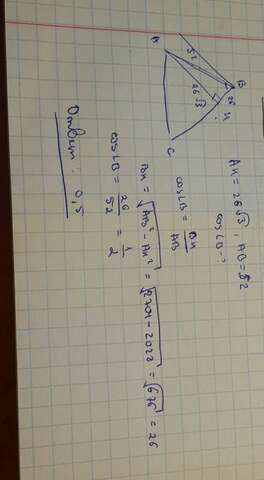 A
52
B
26
26√3
H
C
AH = 26√3, AB = 52
cos∠B - ?
cos∠B = BH/AB
BH = √(AB² - AH²) = √(2704 - 2028) = √676 = 26
cos∠B = 26/52 = 1/2
Ответ: 0,5